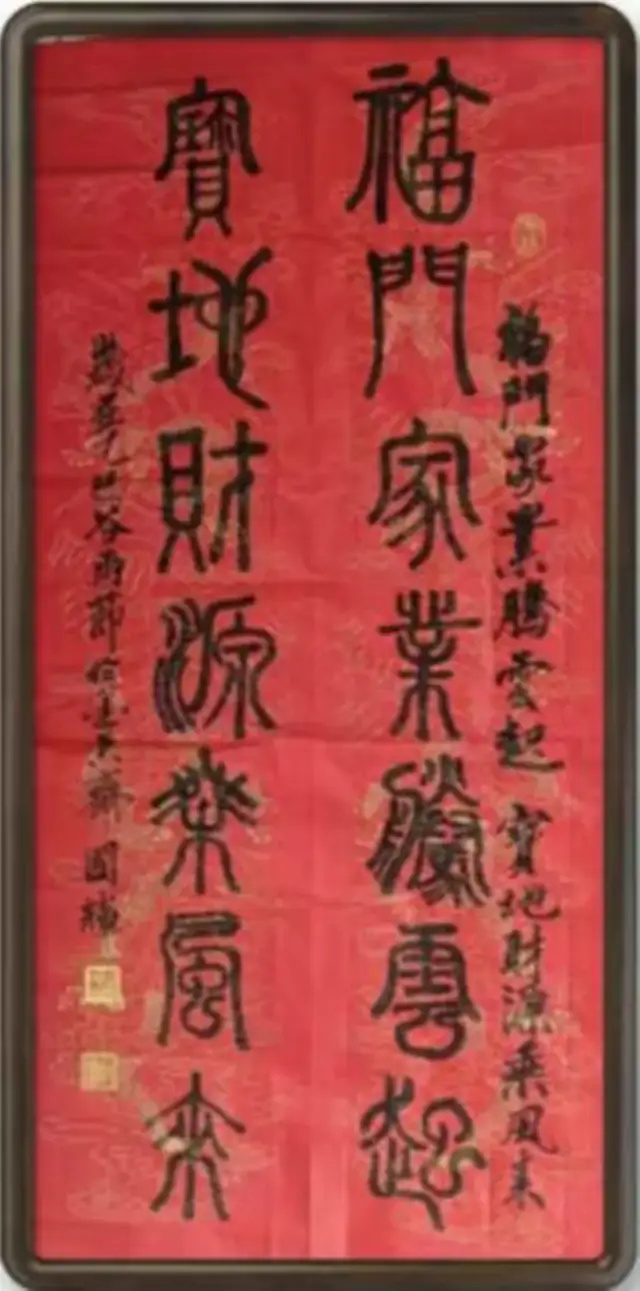 福門家業騰雲起 寶地財源乘風來
福門家業騰雲起
寶地財源乘風來
歲在乙巳谷雨節